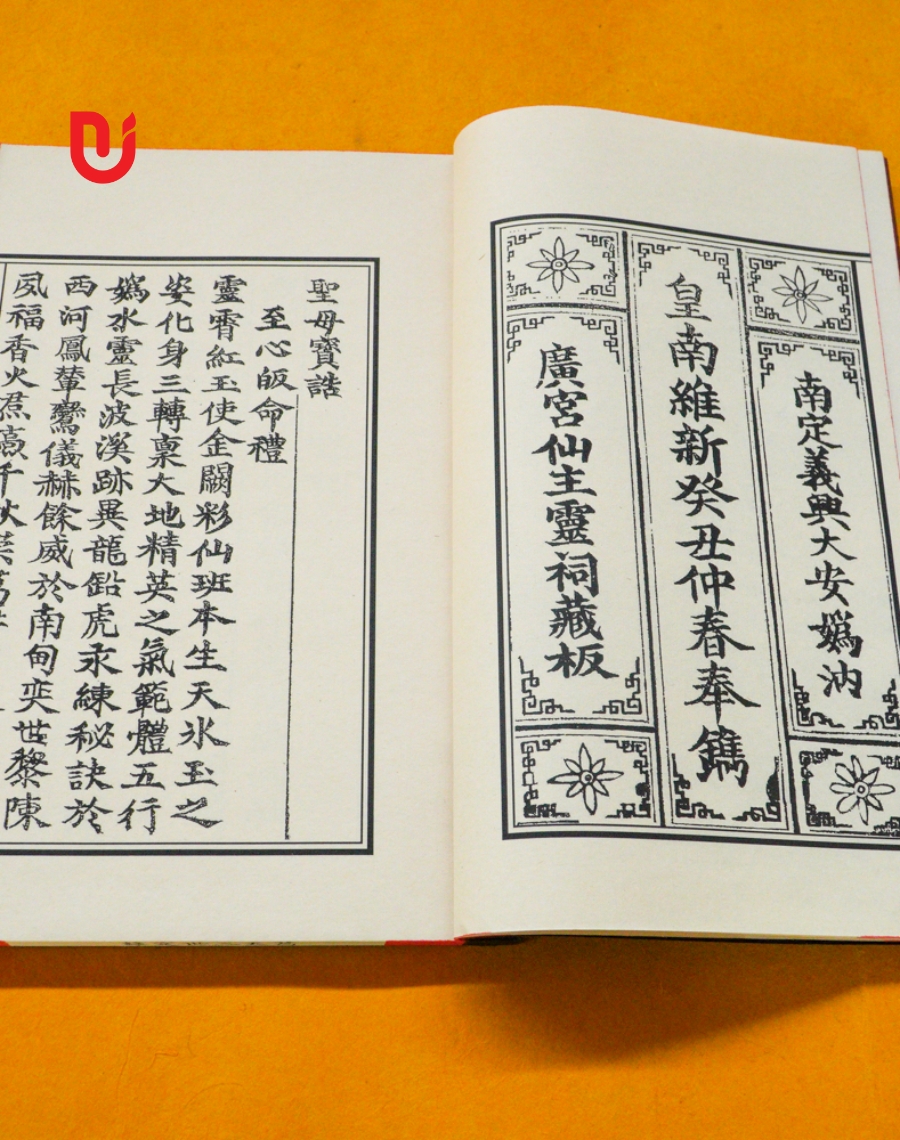 南定義興大安嬀汭
皇南維新癸丑仲春奉鐫
廣宮仙主靈祠藏板
聖母寶誥
至心皈命禮
靈霄紅玉使金闕彩仙班本生天氷玉之
姿化身三轉稟大地精英之氣範體五行
嬀水靈長波溪跡異龍鉛虎汞練秘訣於
西河鳳輦鸞儀赫餘威於南甸奕世黎陳
夙福香火焄蒿千秋